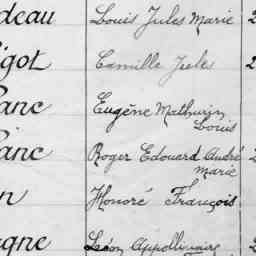 deau Louis Jules Marie 2
igot Camille Jules 2
anc Eugène Mathurin
Louis
anc Roger Edouard André
Marie
n Honoré François
agne Léon Appollinaire